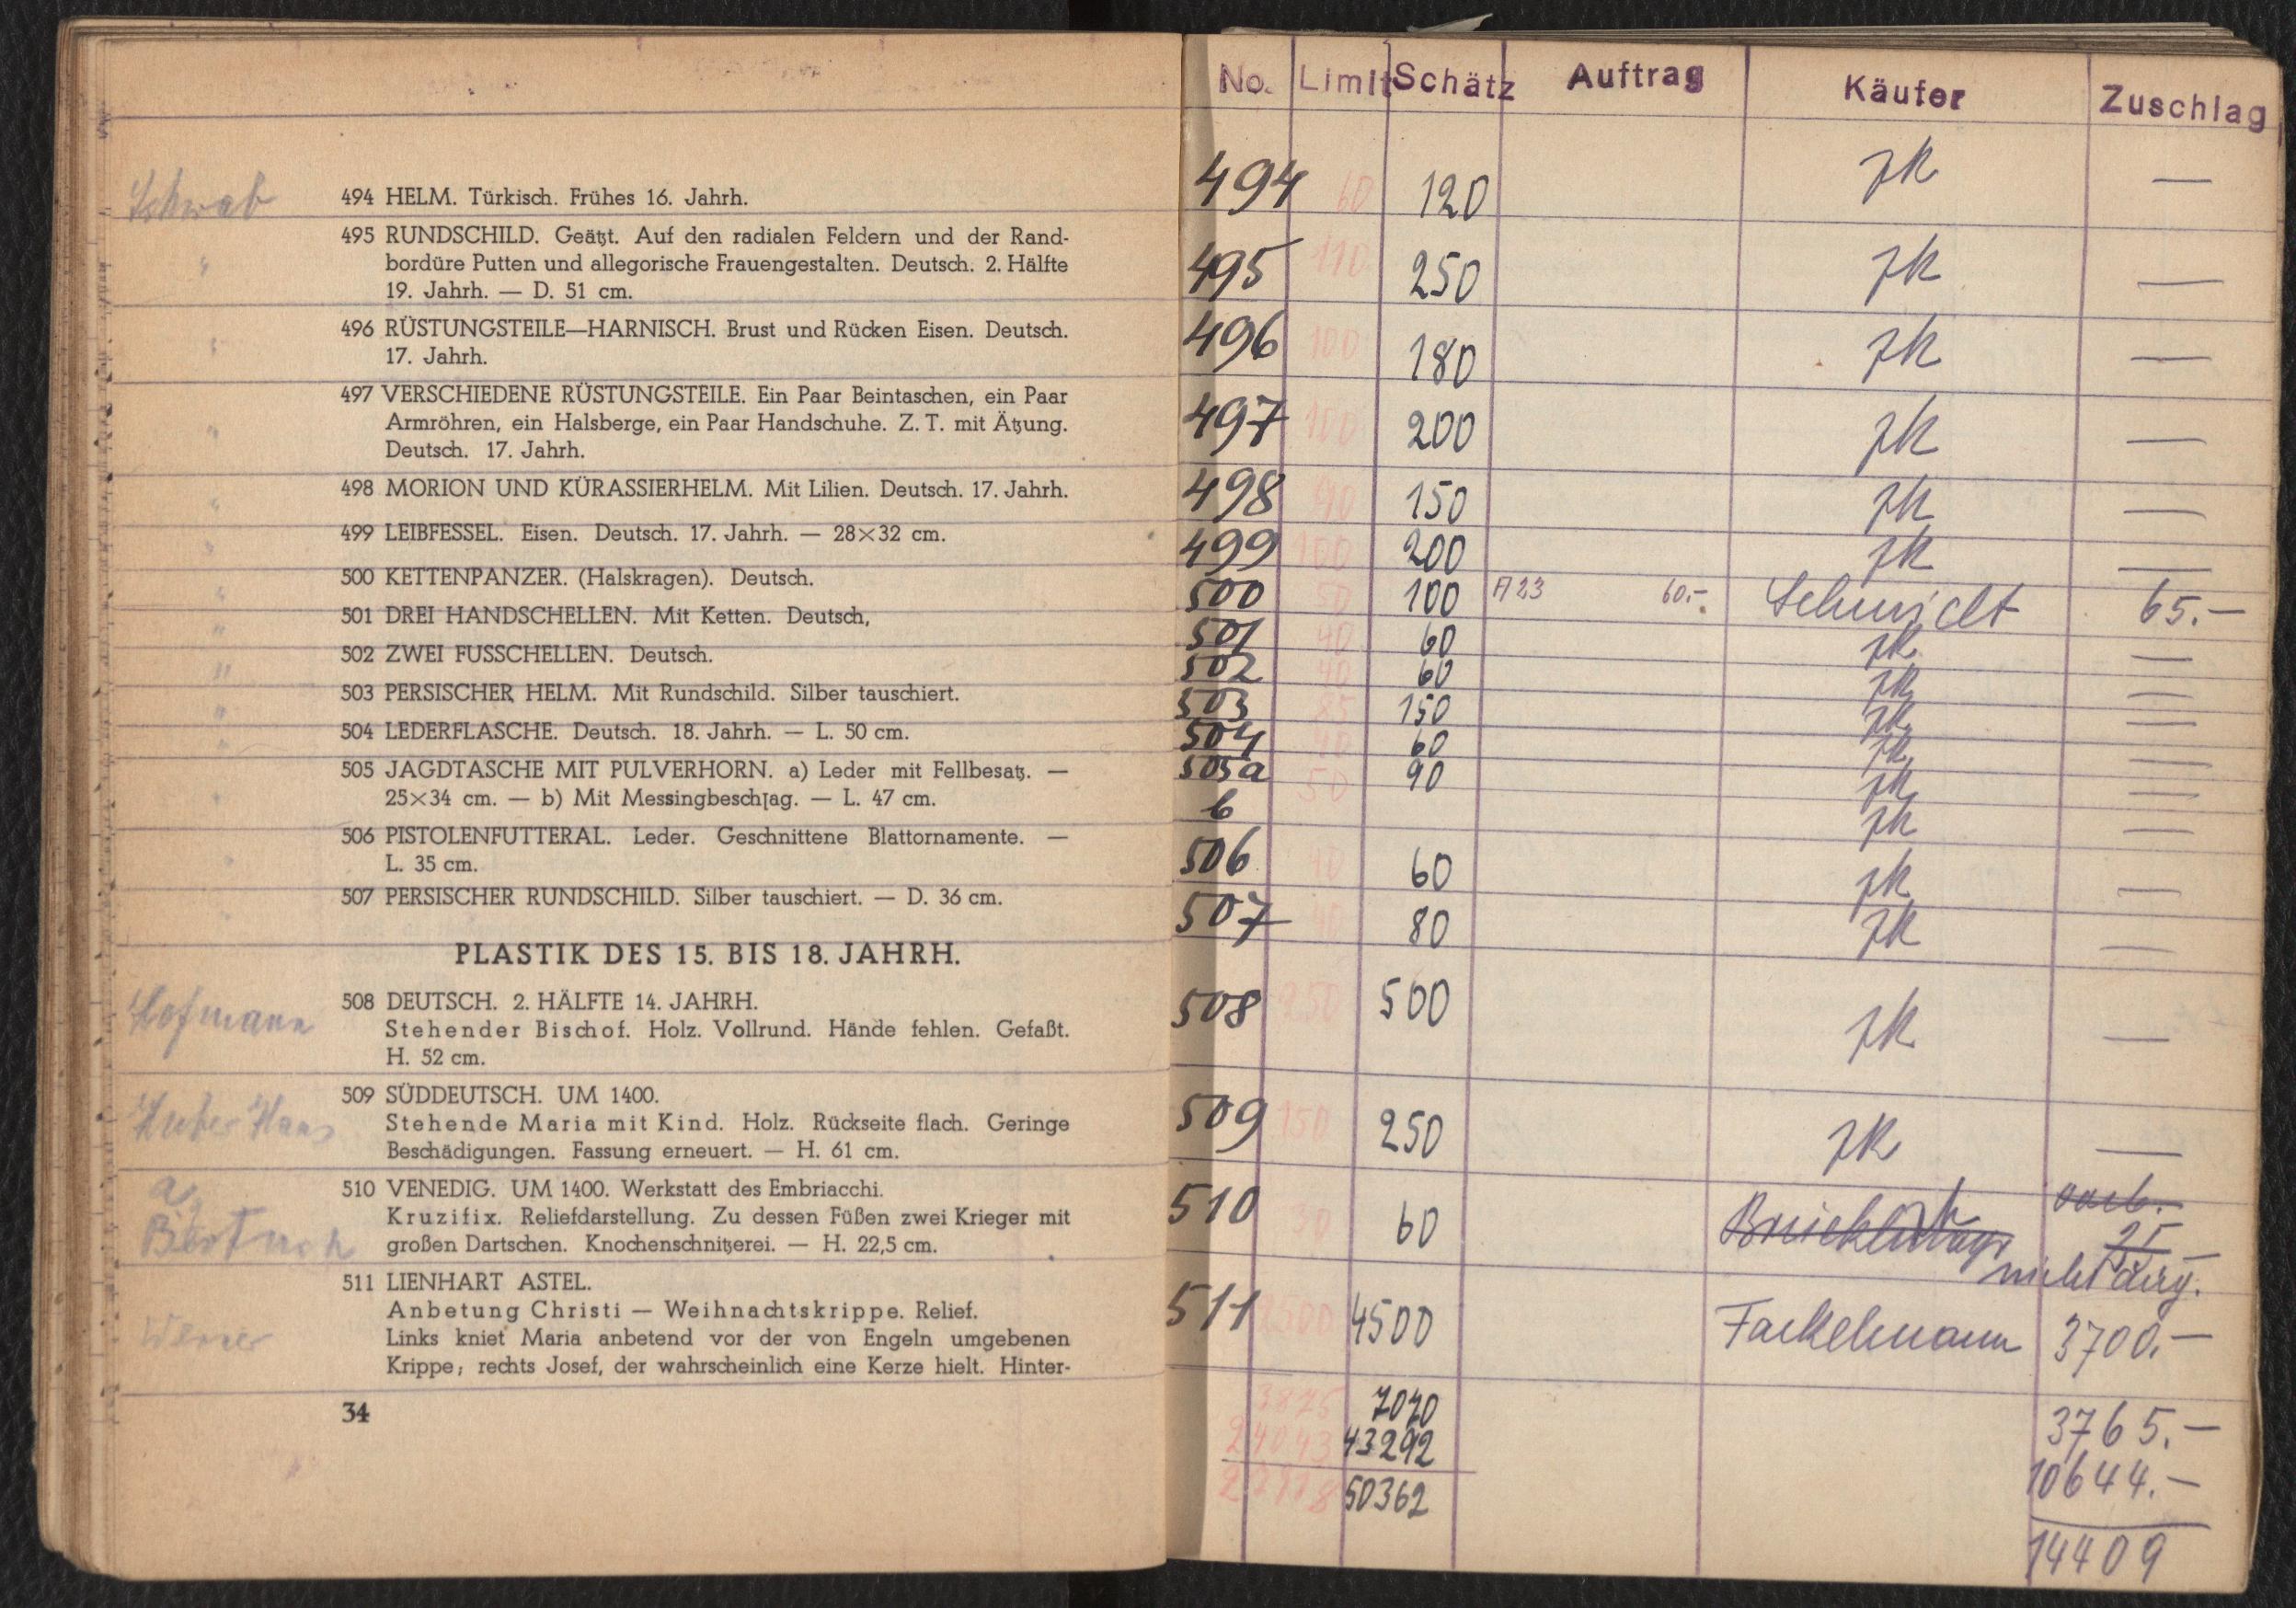 Schwab
494 HELM. Türkisch. Frühes 16. Jahrh.
495 RUNDSCHILD. Geätzt. Auf den radialen Feldern und der Rand-
bordüre Putten und allegorische Frauengestalten. Deutsch. 2. Hälfte
19. Jahrh. — D. 51 cm.
496 RÜSTUNGSTEILE—HARNISCH. Brust und Rücken Eisen. Deutsch.
17. Jahrh.
497 VERSCHIEDENE RÜSTUNGSTEILE. Ein Paar Beintaschen, ein Paar
Armröhren, ein Halsberge, ein Paar Handschuhe. Z. T. mit Ätzung.
Deutsch. 17. Jahrh.
498 MORION UND KÜRASSIERHELM. Mit Lilien. Deutsch. 17. Jahrh.
499 LEIBFESSEL. Eisen. Deutsch. 17. Jahrh. — 28×32 cm.
500 KETTENPANZER. (Halskragen). Deutsch.
501 DREI HANDSCHELLEN. Mit Ketten. Deutsch,
502 ZWEI FUSSCHELLEN. Deutsch.
503 PERSISCHER HELM. Mit Rundschild. Silber tauschiert.
504 LEDERFLASCHE. Deutsch. 18. Jahrh. — L. 50 cm.
505 JAGDTASCHE MIT PULVERHORN. a) Leder mit Fellbesatz. —
25×34 cm. — b) Mit Messingbeschlag. — L. 47 cm.
506 PISTOLENFUTTERAL. Leder. Geschnittene Blattornamente. —
L. 35 cm.
507 PERSISCHER RUNDSCHILD. Silber tauschiert. — D. 36 cm.
PLASTIK DES 15. BIS 18. JAHRH.
Hofmann
508 DEUTSCH. 2. HÄLFTE 14. JAHRH.
Stehender Bischof. Holz. Vollrund. Hände fehlen. Gefaßt.
H. 52 cm.
Huber Hans
509 SÜDDEUTSCH. UM 1400.
Stehende Maria mit Kind. Holz. Rückseite flach. Geringe
Beschädigungen. Fassung erneuert. — H. 61 cm.
510 VENEDIG. UM 1400. Werkstatt des Embriacchi.
Kruzifix. Reliefdarstellung. Zu dessen Füßen zwei Krieger mit
großen Dartschen. Knochenschnitzerei. — H. 22,5 cm.
511 LIENHART ASTEL.
Anbetung Christi — Weihnachtskrippe. Relief.
Werner
Links kniet Maria anbetend vor der von Engeln umgebenen
Krippe; rechts Josef, der wahrscheinlich eine Kerze hielt. Hinter-
34
No. Limit Schätz Auftrag Käufer Zuschlag
494 60 120 zk —
495 110 250 zk —
496 100 180 zk —
497 100 200 zk —
498 90 150 zk —
499 100 200 zk —
500 50 100 A 23 60.- Schmidt 65.—
501 40 60 zk —
502 40 60 zk —
503 85 150 zk —
504 40 60 zk —
505a 50 90 zk —
b zk —
506 40 60 zk —
507 40 80 zk —
508 250 500 zk —
509 150 250 zk —
510 30 60
25
nicht
511 2500 4500 Fackelmann 3700.—
3875 7070 3765.—
24043 43292 10644.—
27918 50362
14409